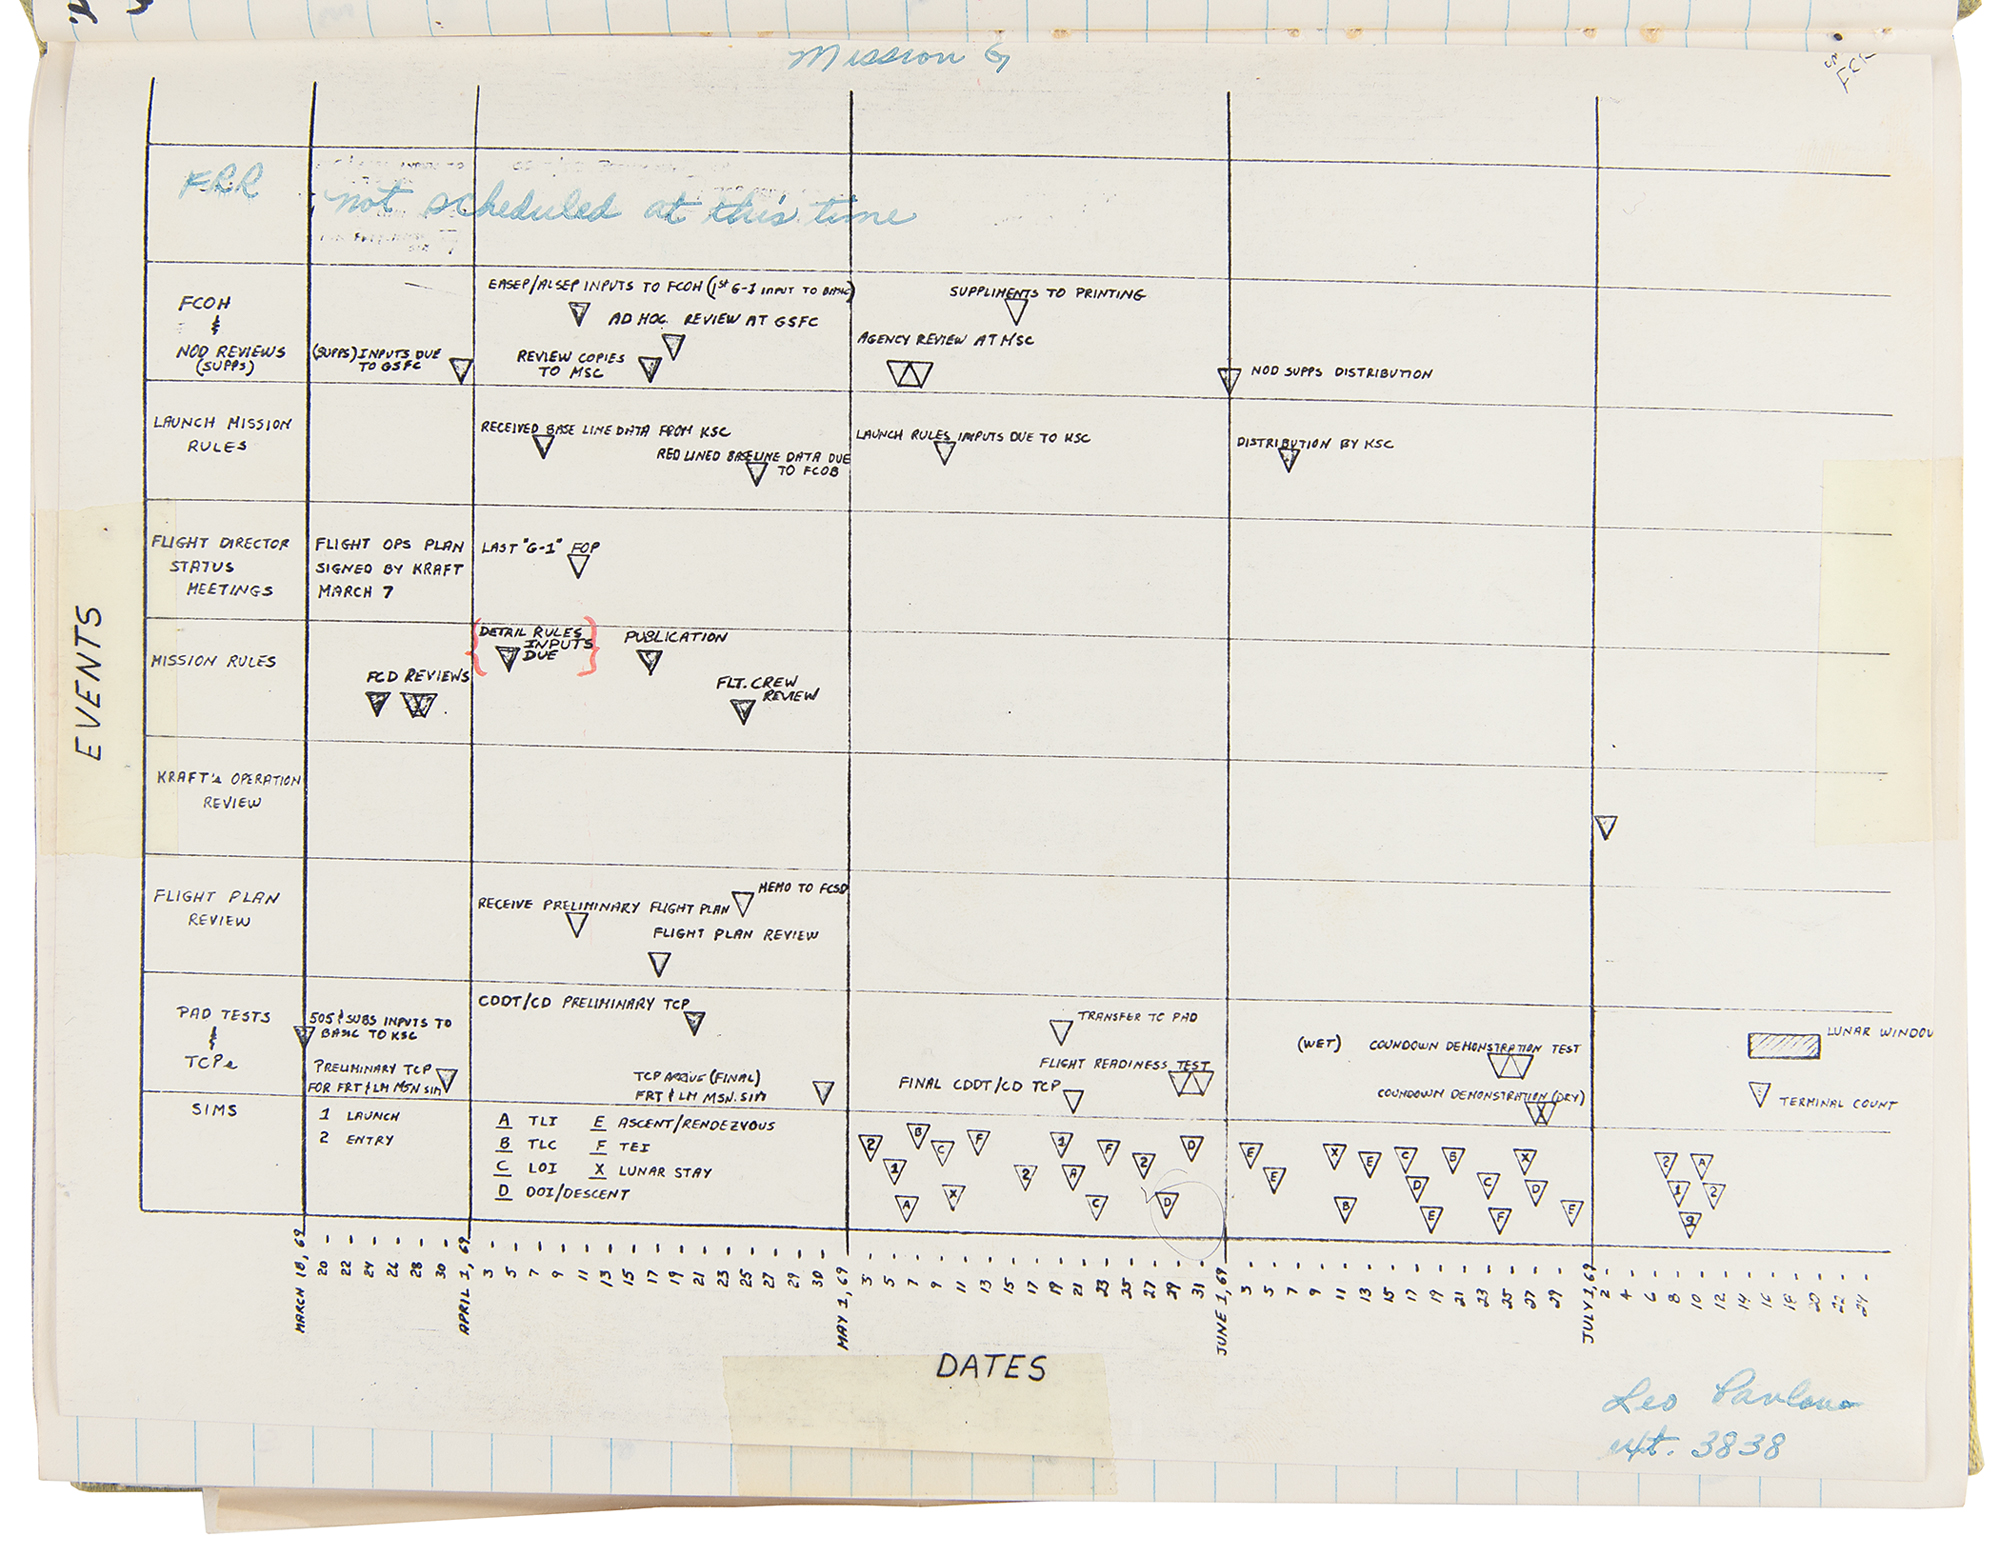 Mission G
FRR
not scheduled at this time
FCOH
&
NOD REVIEWS
(SUPPS)
(SUPPS) INPUTS DUE
TO GSFC
EASEP/ALSEP INPUTS TO FCOH (1st G-1 INPUT TO BASIC)
AD HOC REVIEW AT GSFC
REVIEW COPIES
TO MSC
SUPPLIMENTS TO PRINTING
AGENCY REVIEW AT MSC
NOD SUPPS DISTRIBUTION
LAUNCH MISSION
RULES
RECEIVED BASE LINE DATA FROM KSC
RED LINED BASELINE DATA DUE
TO FCOB
LAUNCH RULES INPUTS DUE TO KSC
DISTRIBUTION BY KSC
FLIGHT DIRECTOR
STATUS
MEETINGS
FLIGHT OPS PLAN
SIGNED BY KRAFT
MARCH 7
LAST "G-1" FOP
EVENTS
MISSION RULES
FCD REVIEWS
DETAIL RULES
INPUTS
DUE
PUBLICATION
FLT. CREW
REVIEW
KRAFT's OPERATION
REVIEW
FLIGHT PLAN
REVIEW
MEMO TO FCSD
RECEIVE PRELIMINARY FLIGHT PLAN
FLIGHT PLAN REVIEW
PAD TESTS
&
TCPs
505 & SUBS INPUTS TO
BASIC TO KSC
PRELIMINARY TCP
FOR FRT & LM MSN SIM
CDDT/CD PRELIMINARY TCP
TCP (FINAL)
FRT & LM MSN. SIM
TRANSFER TO PAD
FLIGHT READINESS TEST
FINAL CDDT/CD TCP
(WET) COUNDOWN DEMONSTRATION TEST
COUNDOWN DEMONSTRATION (DRY)
LUNAR WINDOW
TERMINAL COUNT
SIMS
1 LAUNCH
2 ENTRY
A TLI E ASCENT/RENDEZVOUS
B TLC F TEI
C LOI X LUNAR STAY
D DOI/DESCENT
2 B C F 1 F 2 D E X E C B X 2 A
1 2 A E D C D 1 2
A X C D B E F E 2
MARCH 18, 69 20 22 24 26 28 30 APRIL 1, 69 3 5 7 9 11 13 15 17 19 21 23 25 27 29 30 MAY 1, 69 3 5 7 9 11 13 15 17 19 21 23 25 27 29 31 JUNE 1, 69 3 5 7 9 11 13 15 17 19 21 23 25 27 29 JULY 1, 69 2 4 6 8 10 12 14 16 18 20 22 24
DATES
Leo Pavlow
3838